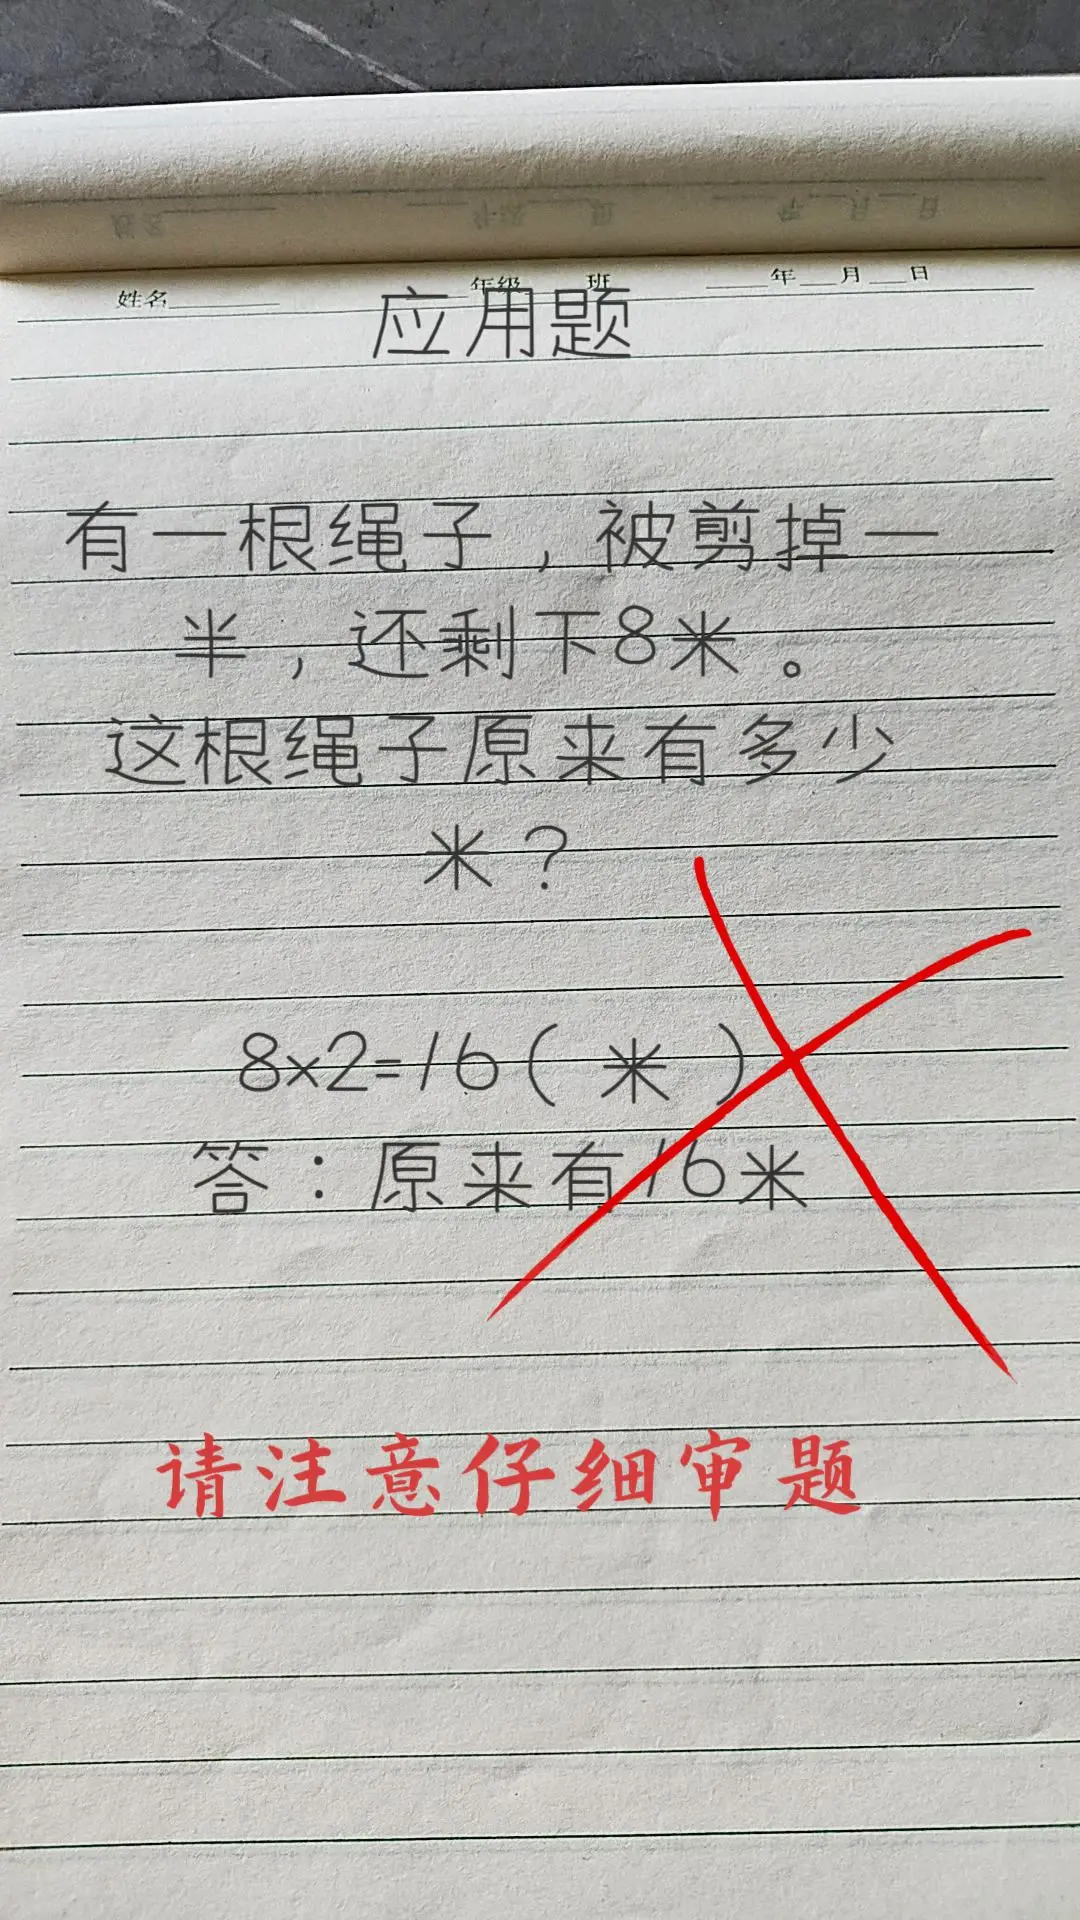 姓名________ ____年级____班 ____年__月__日
应用题
有一根绳子，被剪掉一
半，还剩下8米。
这根绳子原来有多少
米？
8×2=16（米）
答：原来有16米
请注意仔细审题